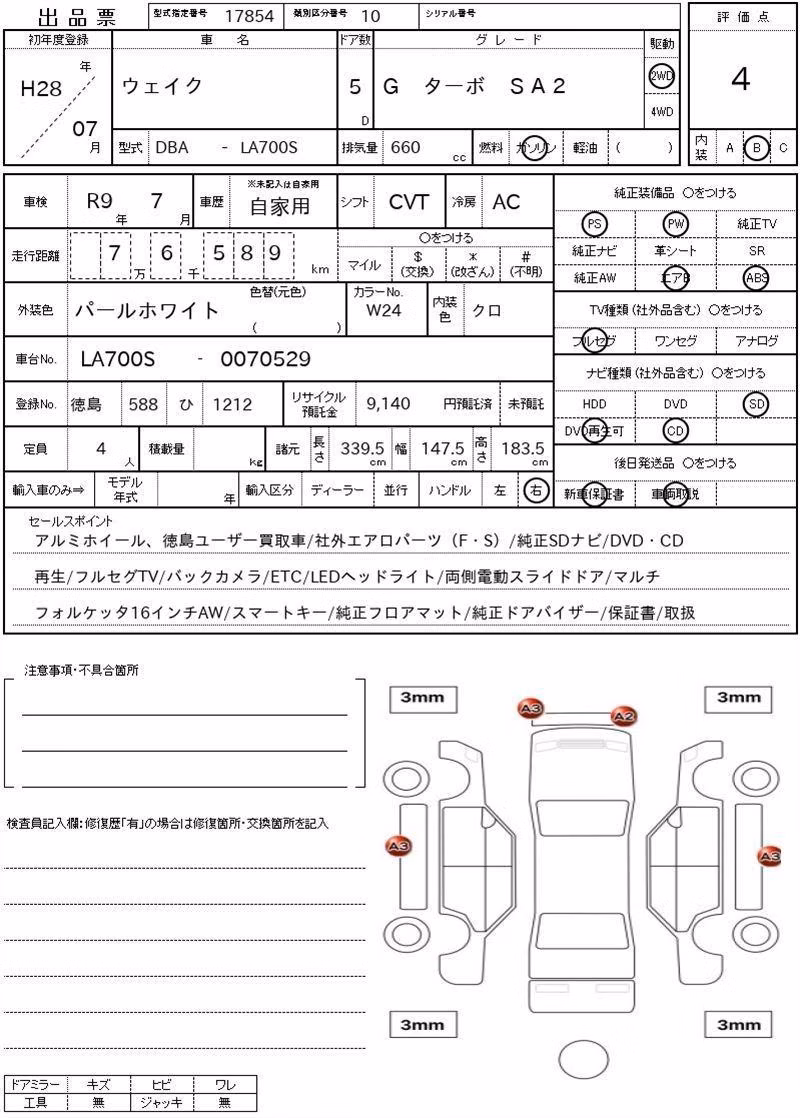 出品票 型式指定番号 17854 類別区分番号 10 シリアル番号
初年度登録 車名 ドア数 グレード 駆動 評価点
H28 年 07 月 ウェイク 5 D G ターボ SA2 2WD 4WD 4
型式 DBA - LA700S 排気量 660 cc 燃料 ガソリン 軽油 ( ) 内装 A B C
車検 R9 年 7 月 車歴 ※未記入は自家用 自家用 シフト CVT 冷房 AC 純正装備品 〇をつける
PS PW 純正TV
走行距離 7 万 6 千 5 8 9 km 〇をつける 純正ナビ 革シート SR
マイル $ (交換) * (改ざん) # (不明) 純正AW エアB ABS
外装色 パールホワイト 色替(元色) ( ) カラーNo. W24 内装色 クロ TV種類(社外品含む) 〇をつける
フルセグ ワンセグ アナログ
車台No. LA700S - 0070529 ナビ種類(社外品含む) 〇をつける
登録No. 徳島 588 ひ 1212 リサイクル預託金 9,140 円預託済 未預託 HDD DVD SD
DVD再生可 CD
定員 4 人 積載量 kg 諸元 長さ 339.5 cm 幅 147.5 cm 高さ 183.5 cm 後日発送品 〇をつける
輸入車のみ⇒ モデル年式 年 輸入区分 ディーラー 並行 ハンドル 左 右 新車保証書 車両取説
セールスポイント
アルミホイール、徳島ユーザー買取車/社外エアロパーツ（F・S）/純正SDナビ/DVD・CD
再生/フルセグTV/バックカメラ/ETC/LEDヘッドライト/両側電動スライドドア/マルチ
フォルケッタ16インチAW/スマートキー/純正フロアマット/純正ドアバイザー/保証書/取扱
注意事項・不具合箇所
3mm 3mm
A3 A2
検査員記入欄：修復歴「有」の場合は修復箇所・交換箇所を記入
A3 A3
3mm 3mm
ドアミラー キズ ヒビ ワレ
工具 無 ジャッキ 無